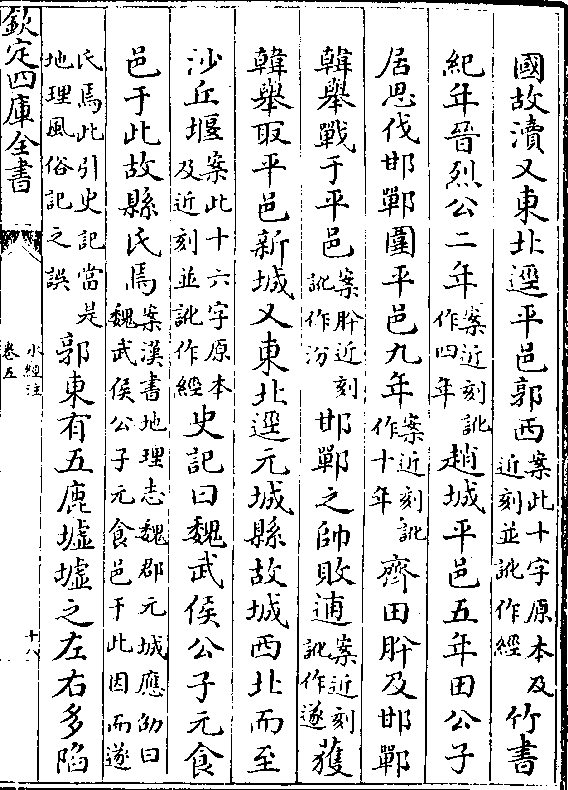 國故瀆又東北逕平邑郭西案此十字原本及近刻並訛作經竹書
紀年晉烈公二年案近刻訛作四年趙城平邑五年田公子
居思伐邯鄲圍平邑九年案近刻訛作十年齊田肹及邯鄲
韓舉戰于平邑案肹近刻訛作汾邯鄲之帥敗逋案近刻訛作遂獲
韓舉取平邑新城又東北逕元城縣故城西北而至
沙丘堰案此十六字原本及近刻並訛作經史記曰魏武侯公子元食
邑于此故縣氏焉案漢書地理志魏郡元城應劭曰魏武侯公子元食邑于此因而遂
氏焉此引史記當是地理風俗記之誤郭東有五鹿墟墟之左右多陷
欽定四庫全書
水經注
卷五
十八